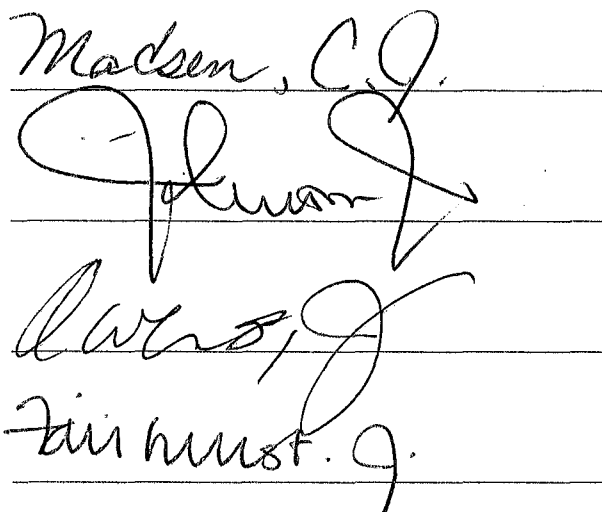 Madsen, C.J.
Johnson J.
Owens, J.
Fairhurst. J.